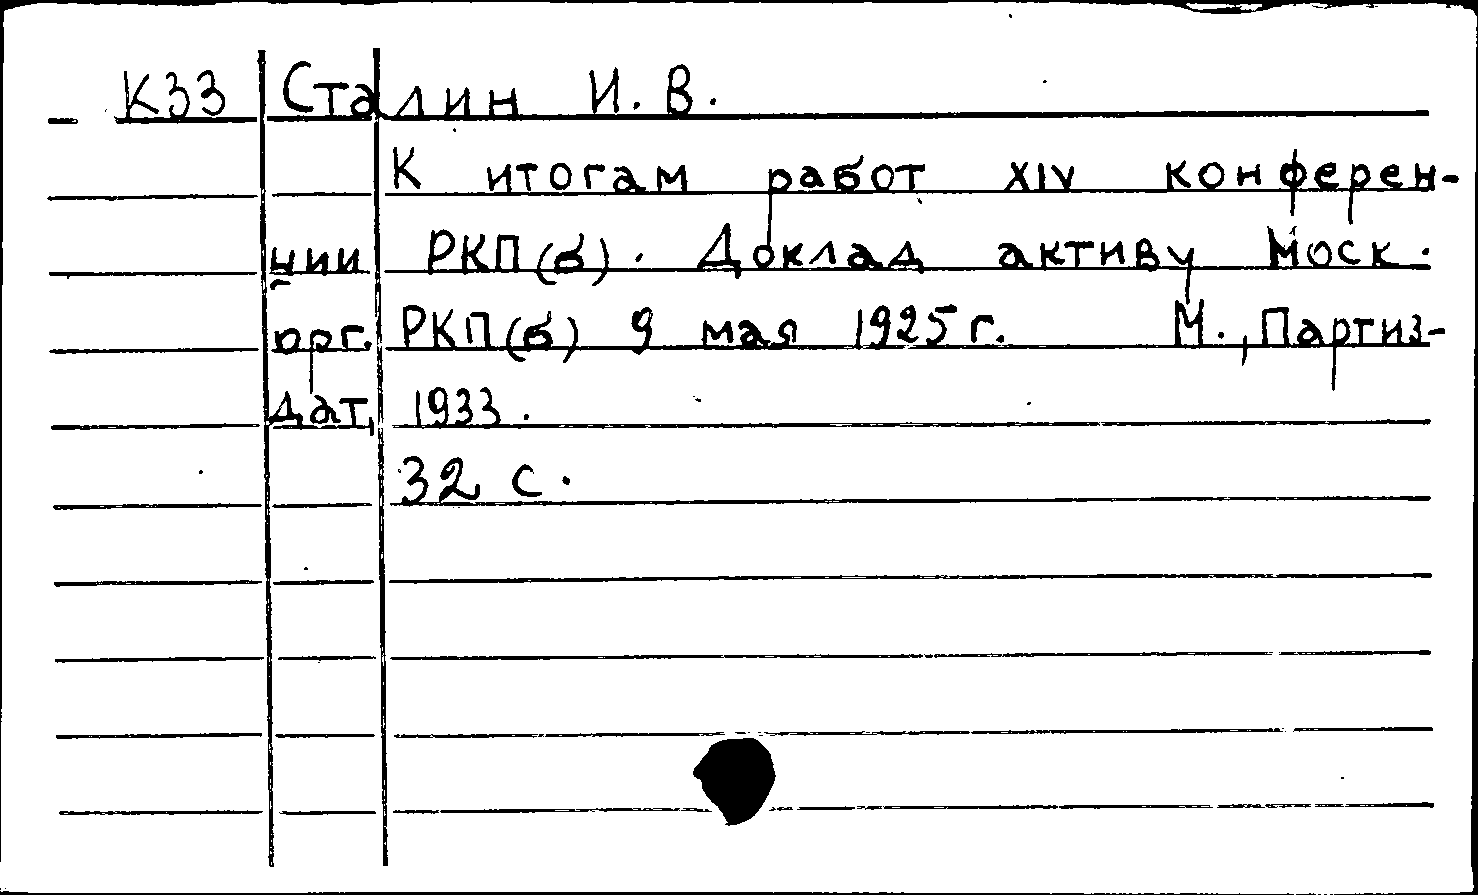 К33 Сталин И. В.
К итогам работ XIV конферен-
ции РКП(б). Доклад активу Моск.
орг. РКП(б) 9 мая 1925 г. М., Партиз-
дат, 1933.
32 с.